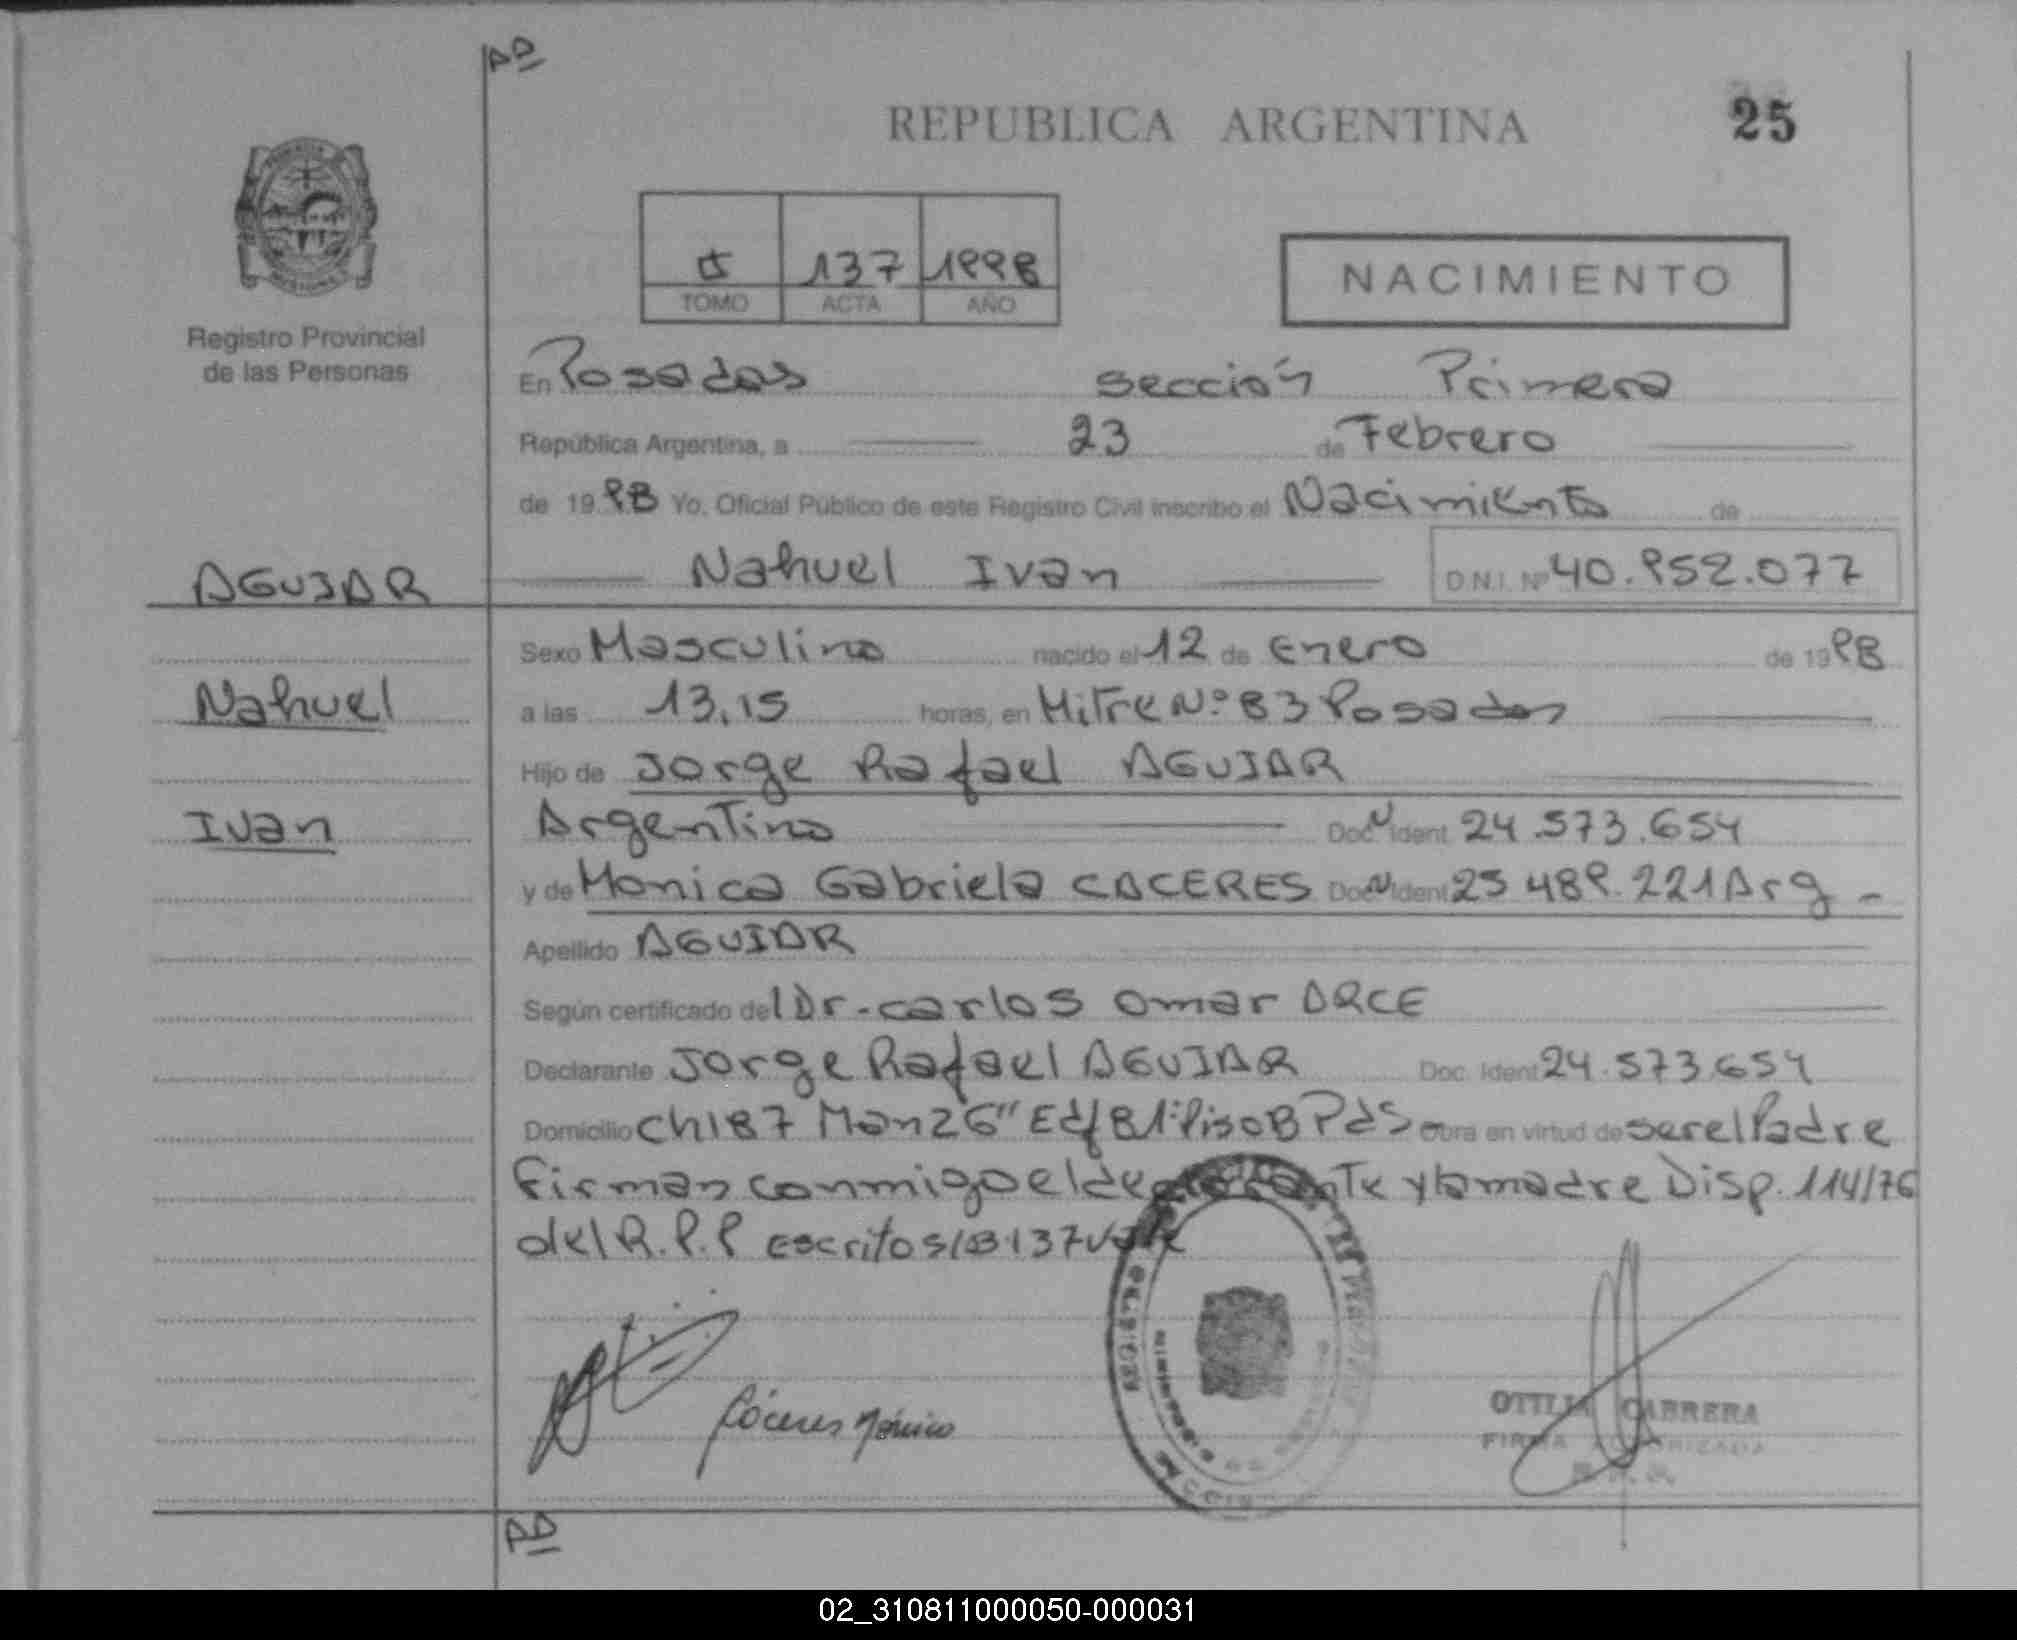 AD
REPUBLICA ARGENTINA 25
137 1998
TOMO ACTA AÑO
NACIMIENTO
Registro Provincial
de las Personas
En Posadas sección Primera
República Argentina, a 23 de Febrero
de 1998 Yo, Oficial Público de este Registro Civil inscribo el Nacimiento de
AGUIAR Nahuel Ivan D.N.I. Nº 40.952.077
Sexo Masculino nacido el 12 de Enero de 1998
Nahuel a las 13,15 horas, en Mitre Nº 83 Posadas
Hijo de Jorge Rafael AGUIAR
Ivan Argentino Doc N Ident 24.573.654
y de Monica Gabriela CACERES Doc N Ident 25 489.221 Arg -
Apellido AGUIAR
Según certificado del Dr. Carlos Omar ARCE
Declarante Jorge Rafael AGUIAR Doc. Ident 24.573.654
Domicilio Ch187 Man26" Edf 81º Piso B Pds - obra en virtud de ser el Padre
Firman conmigo el declarante y la madre Disp. 114/76
del R.P.P escritos 137
Cáceres Mónica
OTTILIA CABRERA
FIRMA AUTORIZADA
AD
02_310811000050-000031